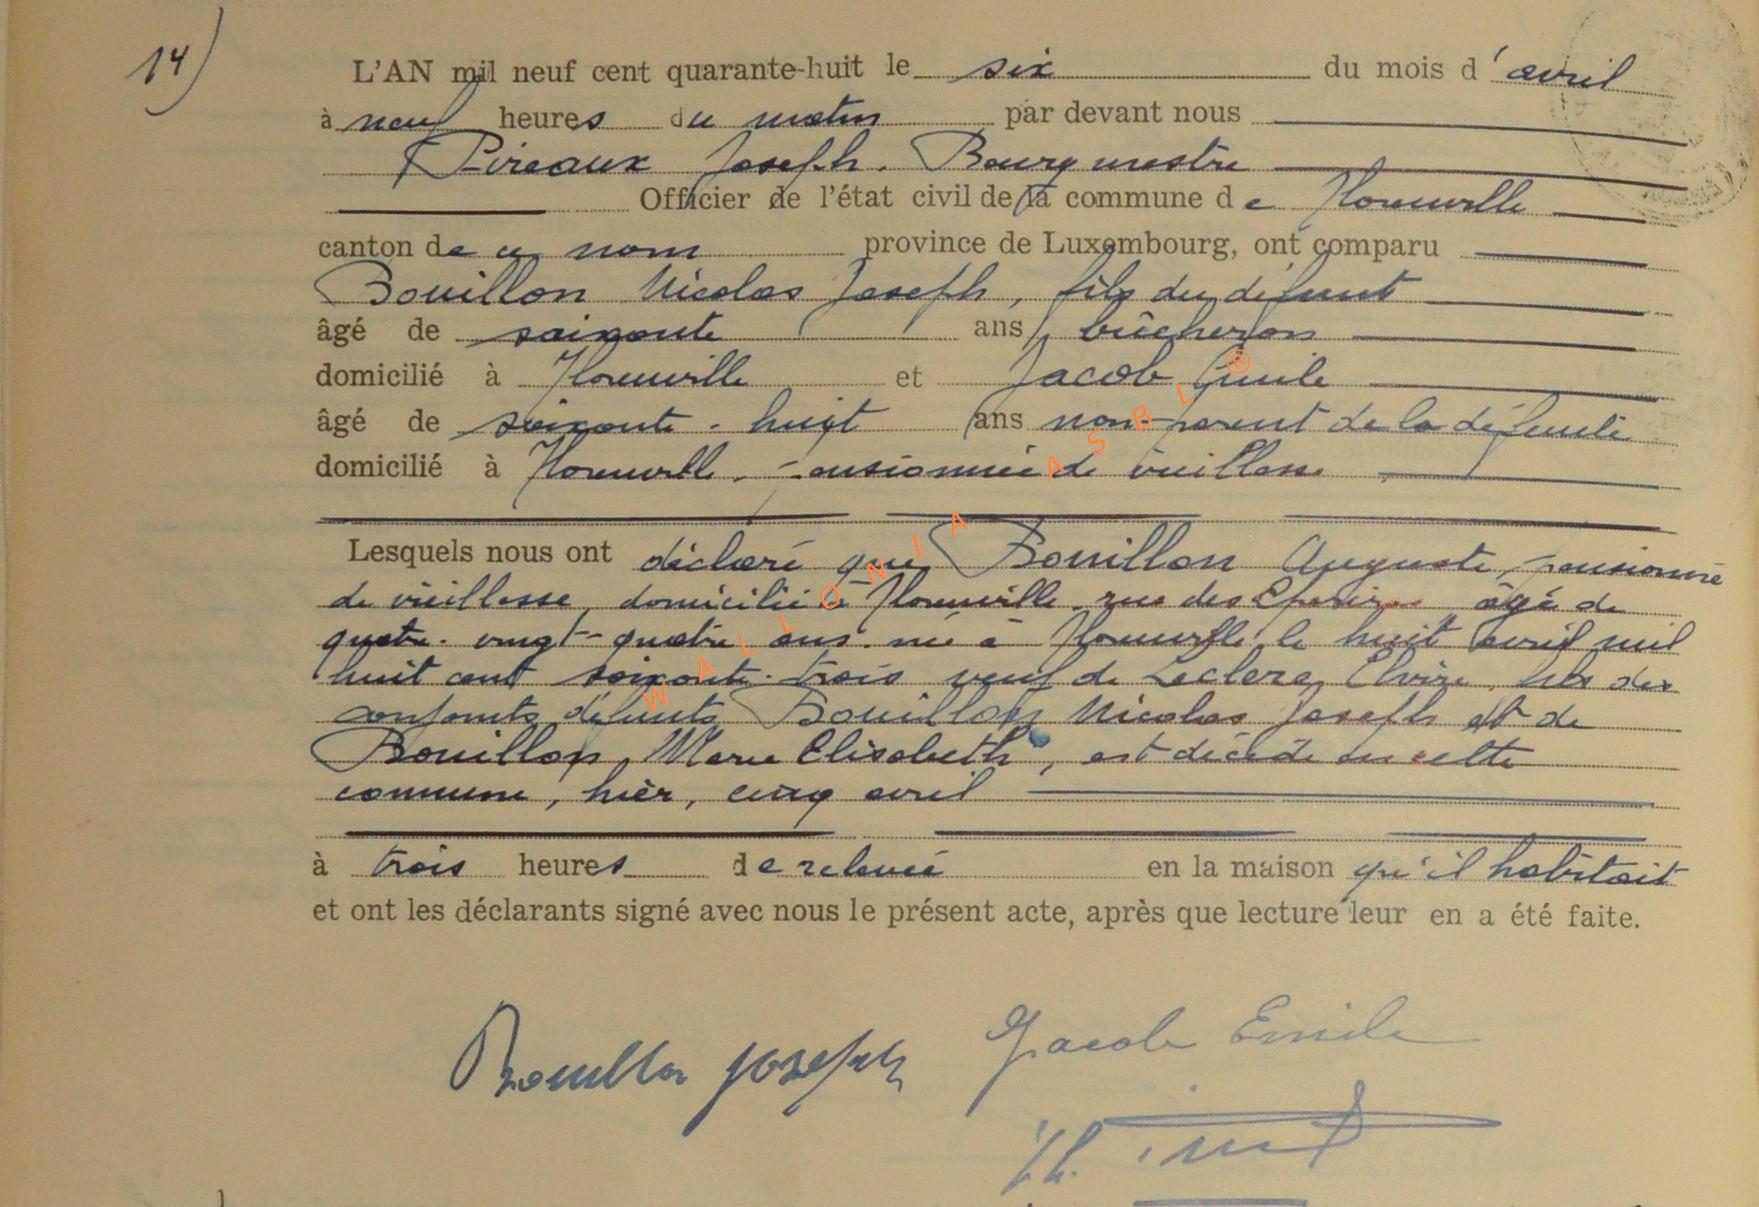 14)
L'AN mil neuf cent quarante-huit le six du mois d'avril
à neuf heures du matin par devant nous
Pireaux Joseph. Bourgmestre
Officier de l'état civil de la commune de Florenville
canton de ce nom province de Luxembourg, ont comparu
Bouillon Nicolas Joseph, fils du défunt
âgé de soixante ans, bûcheron
domicilié à Florenville et Jacob Emile
âgé de soixante-huit ans non-parent de la défunte
domicilié à Florenville, pensionné de vieillesse
Lesquels nous ont déclaré que Bouillon Auguste, pensionné
de vieillesse, domicilié à Florenville rue des âgé de
quatre-vingt-quatre ans né à Florenville le huit avril mil
huit cent soixante-trois veuf de Leclerc, Elvire, fils des
conjoints défunts Bouillon Nicolas Joseph et de
Bouillon, Marie Elisabeth, est décédé en cette
commune, hier, cinq avril
à trois heures de relevée en la maison qu'il habitait
et ont les déclarants signé avec nous le présent acte, après que lecture leur en a été faite.
Bouillon Joseph Jacob Emile
WALLONIA ASBL ®